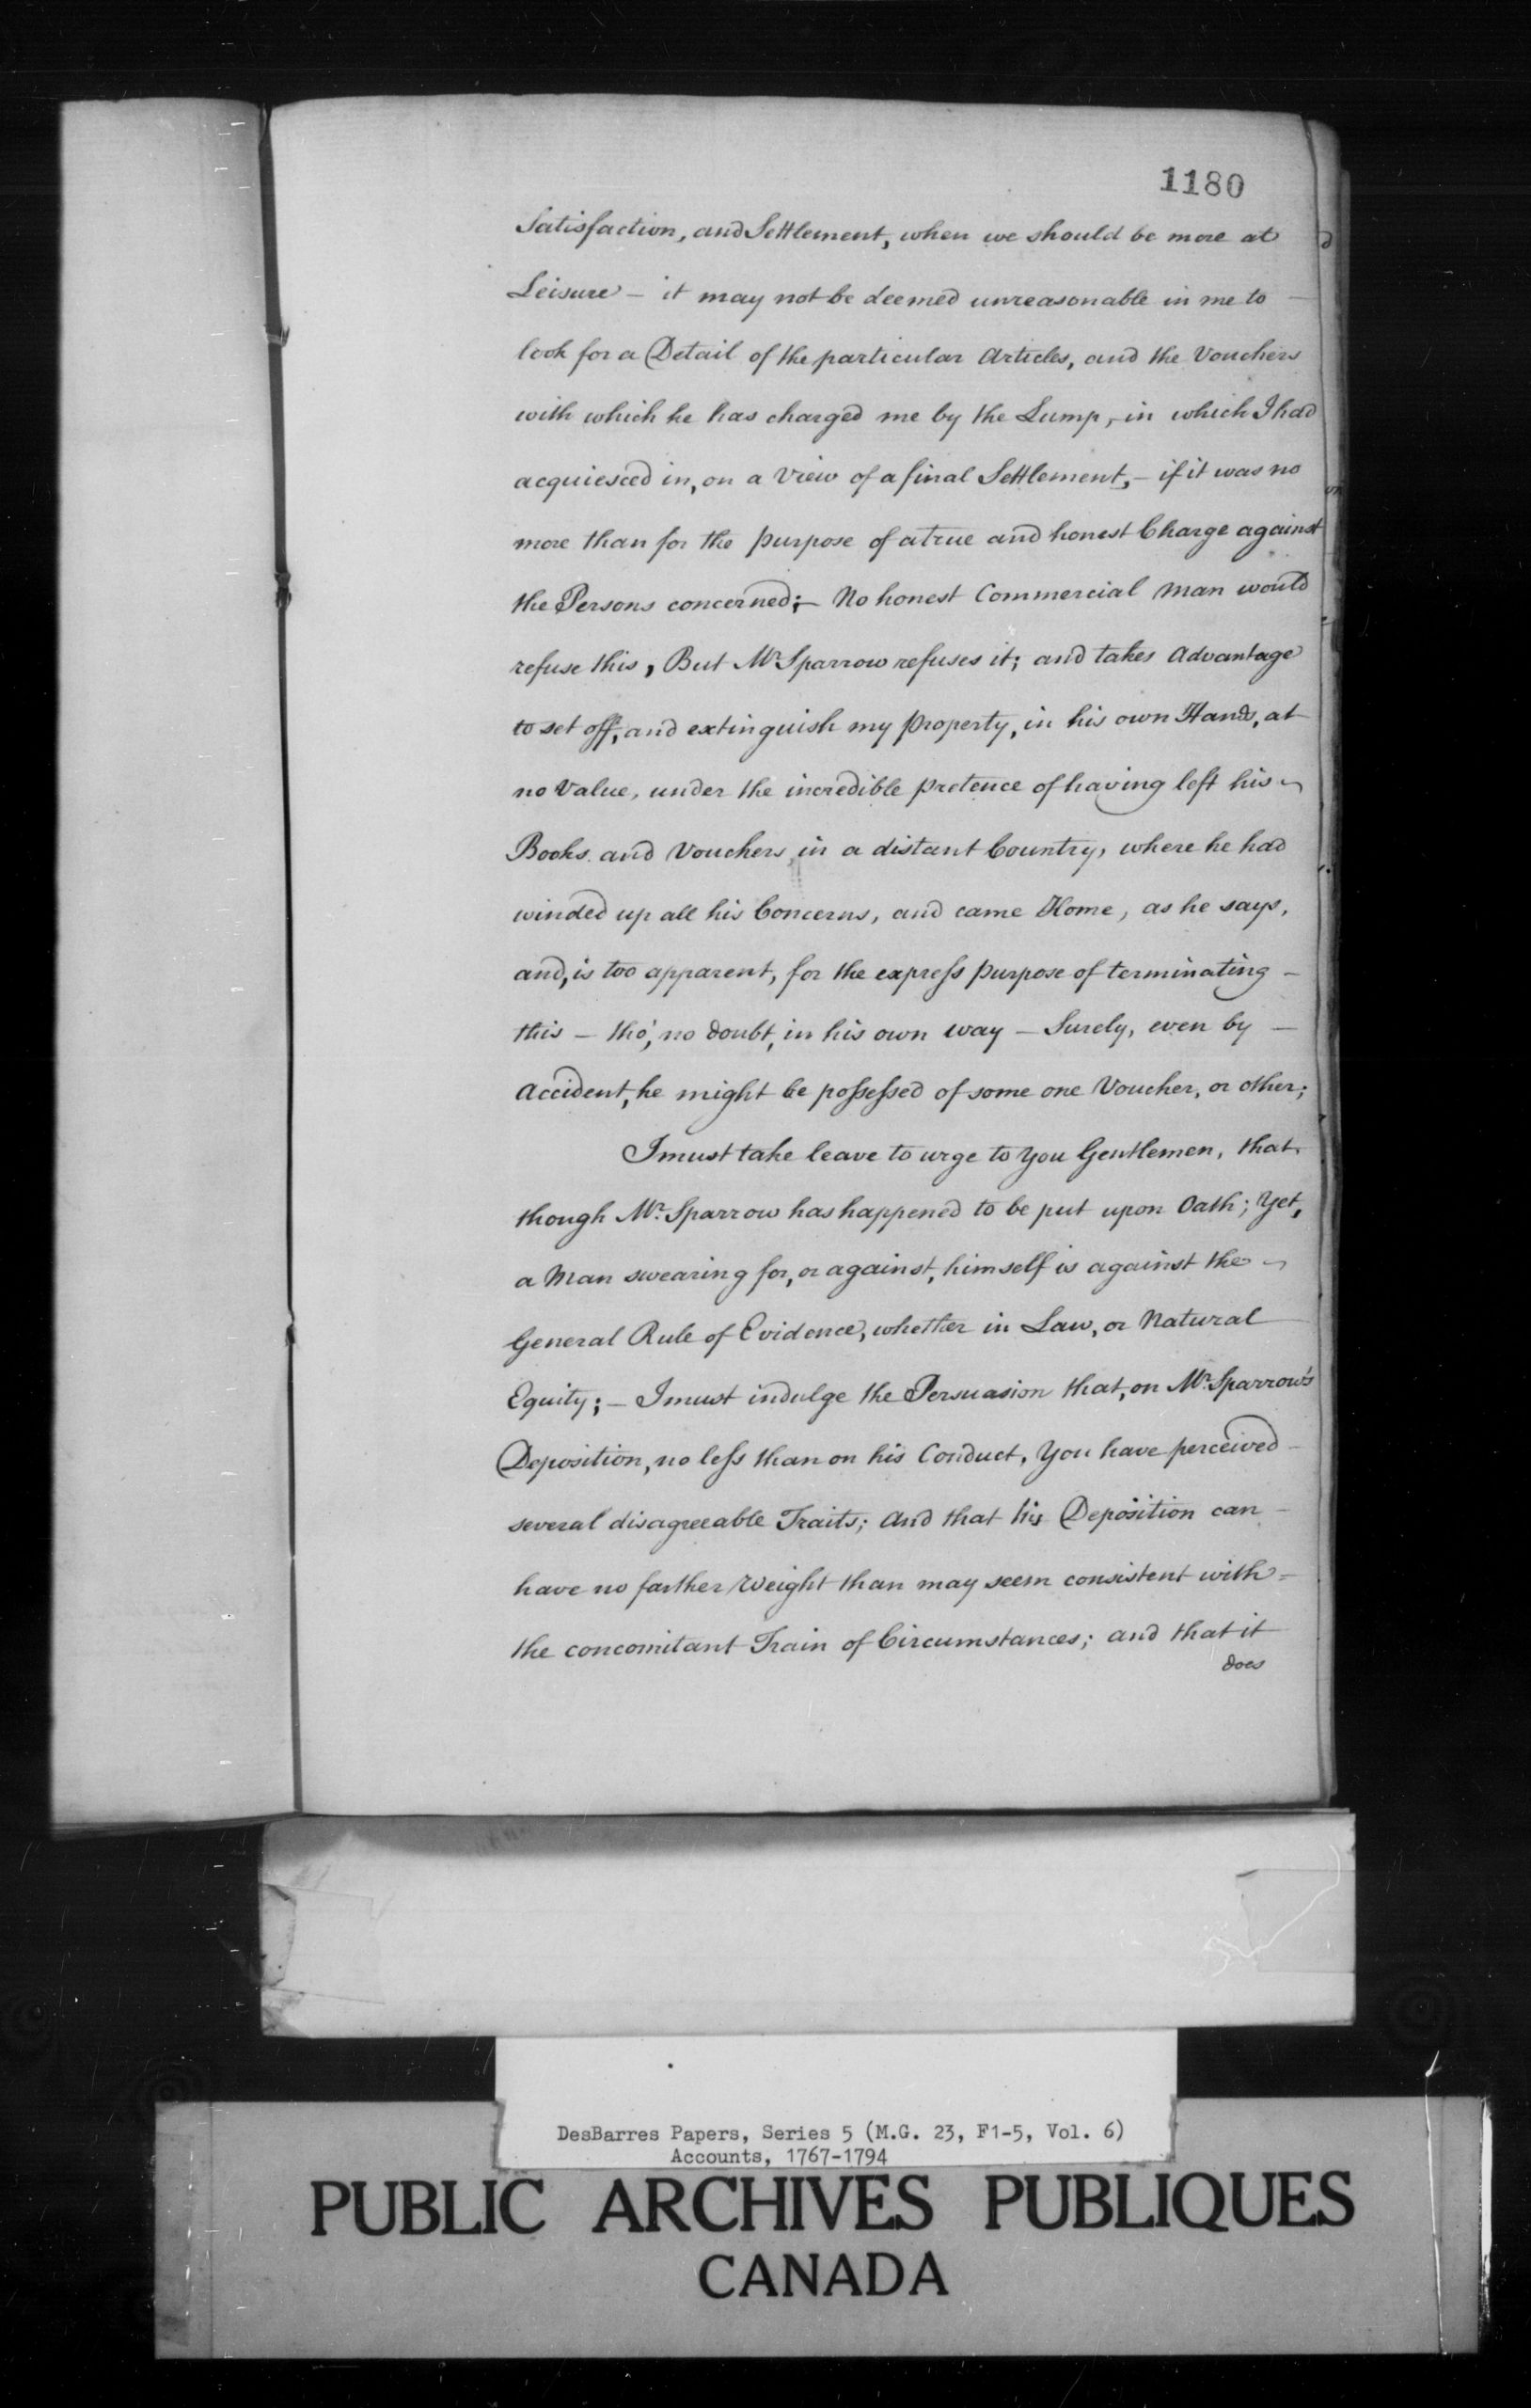 1180
Satisfaction, and Settlement, when we should be more at
Leisure – it may not be deemed unreasonable in me to –
look for a Detail of the particular Articles, and the Vouchers
with which he has charged me by the Lump, – in which I had
acquiesced in, on a View of a final Settlement, – if it was no
more than for the purpose of a true and honest Charge against
the Persons concerned; – No honest Commercial Man would
refuse this, But Mr Sparrow refuses it; and takes Advantage
to set off, and extinguish my property, in his own Hands, at
no Value, under the incredible pretence of having left his
Books and Vouchers, in a distant Country, where he had
winded up all his Concerns, and came Home, as he says,
and, is too apparent, for the express purpose of terminating –
this – tho', no doubt, in his own way – Surely, even by –
Accident, he might be possessed of some one Voucher, or other;
I must take leave to urge to You Gentlemen, that
though Mr. Sparrow has happened to be put upon Oath; Yet,
a Man swearing for, or against, himself is against the
General Rule of Evidence, whether in Law, or Natural
Equity; – I must indulge the Persuasion that, on Mr Sparrow's
Deposition, no less than on his Conduct, You have perceived –
several disagreeable Traits; And that his Deposition can –
have no farther Weight than may seem consistent with =
the concomitant Train of Circumstances; and that it
does
DesBarres Papers, Series 5 (M.G. 23, F1-5, Vol. 6)
Accounts, 1767-1794
PUBLIC ARCHIVES PUBLIQUES
CANADA